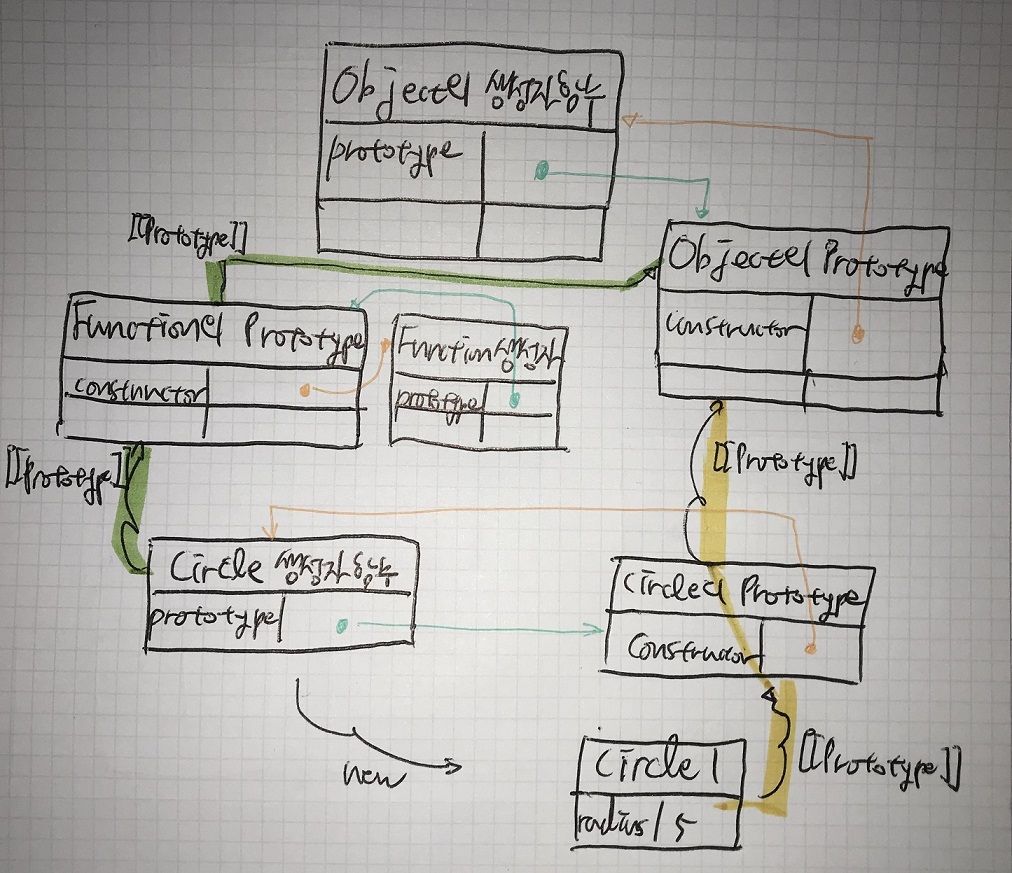 Object의 생성자 함수
prototype
[[Prototype]]
Object의 Prototype
constructor
Function의 Prototype
constructor
Function생성자
prototype
[[Prototype]]
[[Prototype]]
Circle 생성자 함수
prototype
Circle의 Prototype
Constructor
new
Circle1
radius 5
[[Prototype]]